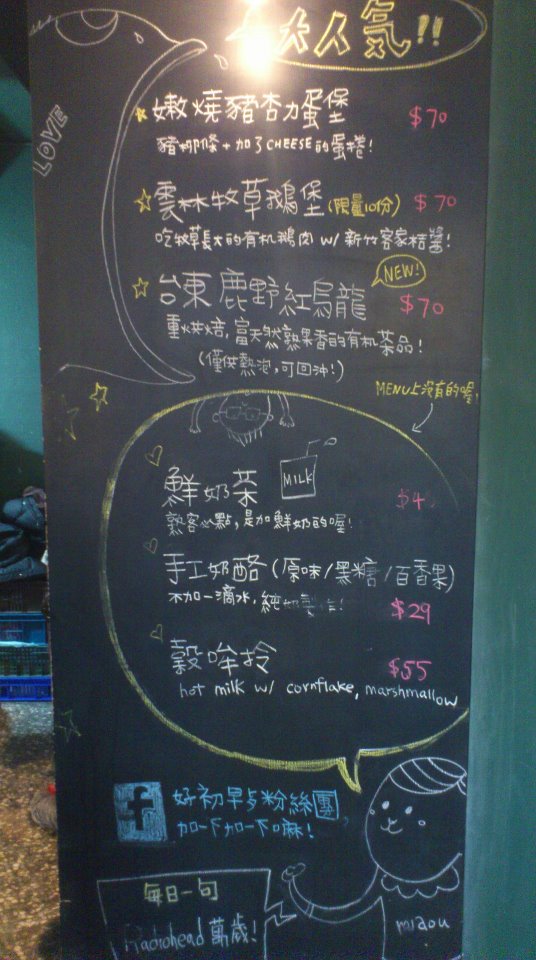 LOVE
大人氣!!
嫩燒豬杏力蛋堡 $70
豬柳條+加了CHEESE的蛋捲!
雲林牧草鵝堡(限量10份) $70
吃牧草長大的有机鵝肉 w/ 新竹客家桔醬!
NEW!
台東鹿野紅烏龍 $70
重烘焙,富天然熟果香的有机茶品!
(僅供熱泡,可回沖!)
MENU上沒有的喔!
MILK
鮮奶茶 $4
熟客必點,是加鮮奶的喔!
手工奶酪(原味/黑糖/百香果)
不加一滴水,純奶 $29
穀哞拎 $55
hot milk w/ cornflake, marshmallow
f 好初早歺粉絲團
加一下加一下嘛!
每日一句
Radiohead 萬歲!
miaou